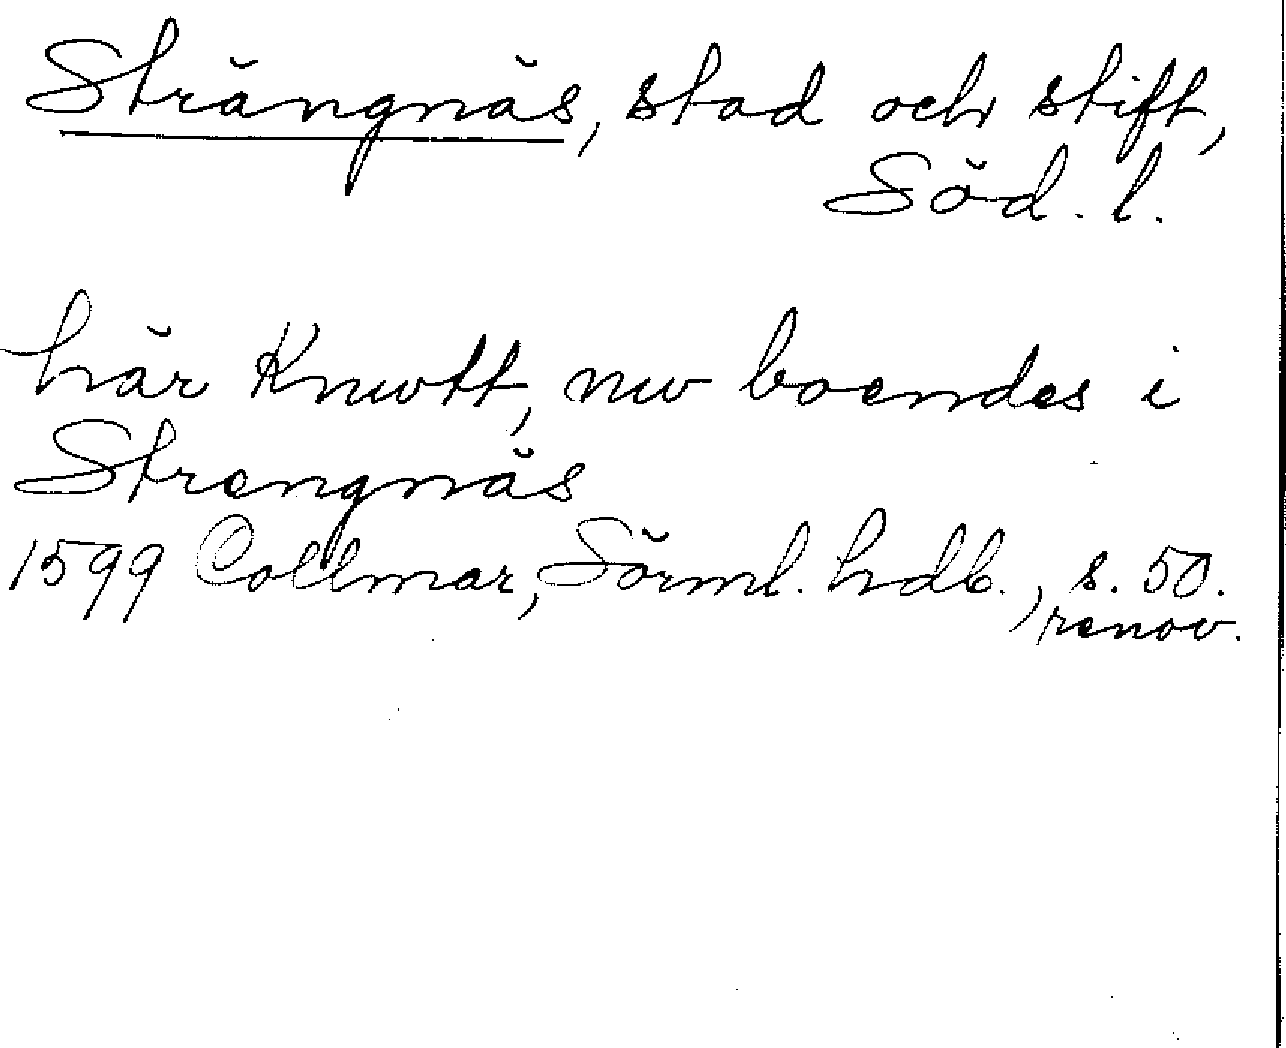 Strängnäs, stad och stift,
Söd. l.
här Knwtt, nw boendes i
Strengnäs
1599 Collmar, Sörml. hdb., s. 50.
renov.